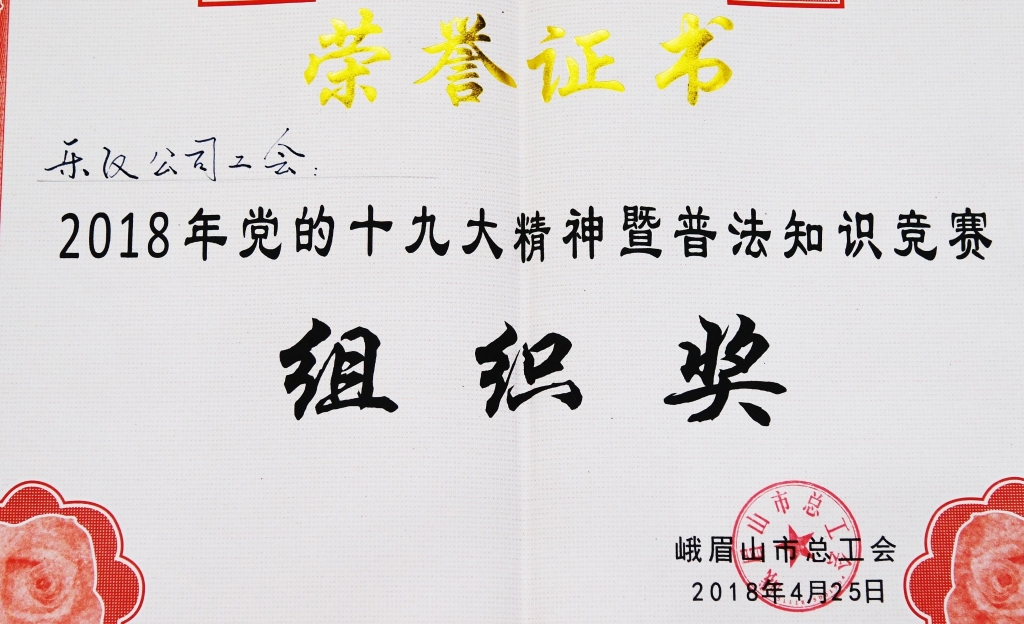 荣誉证书
乐汉公司工会:
2018年党的十九大精神暨普法知识竞赛
组织奖
峨眉山市总工会
峨眉山市总工会
2018年4月25日